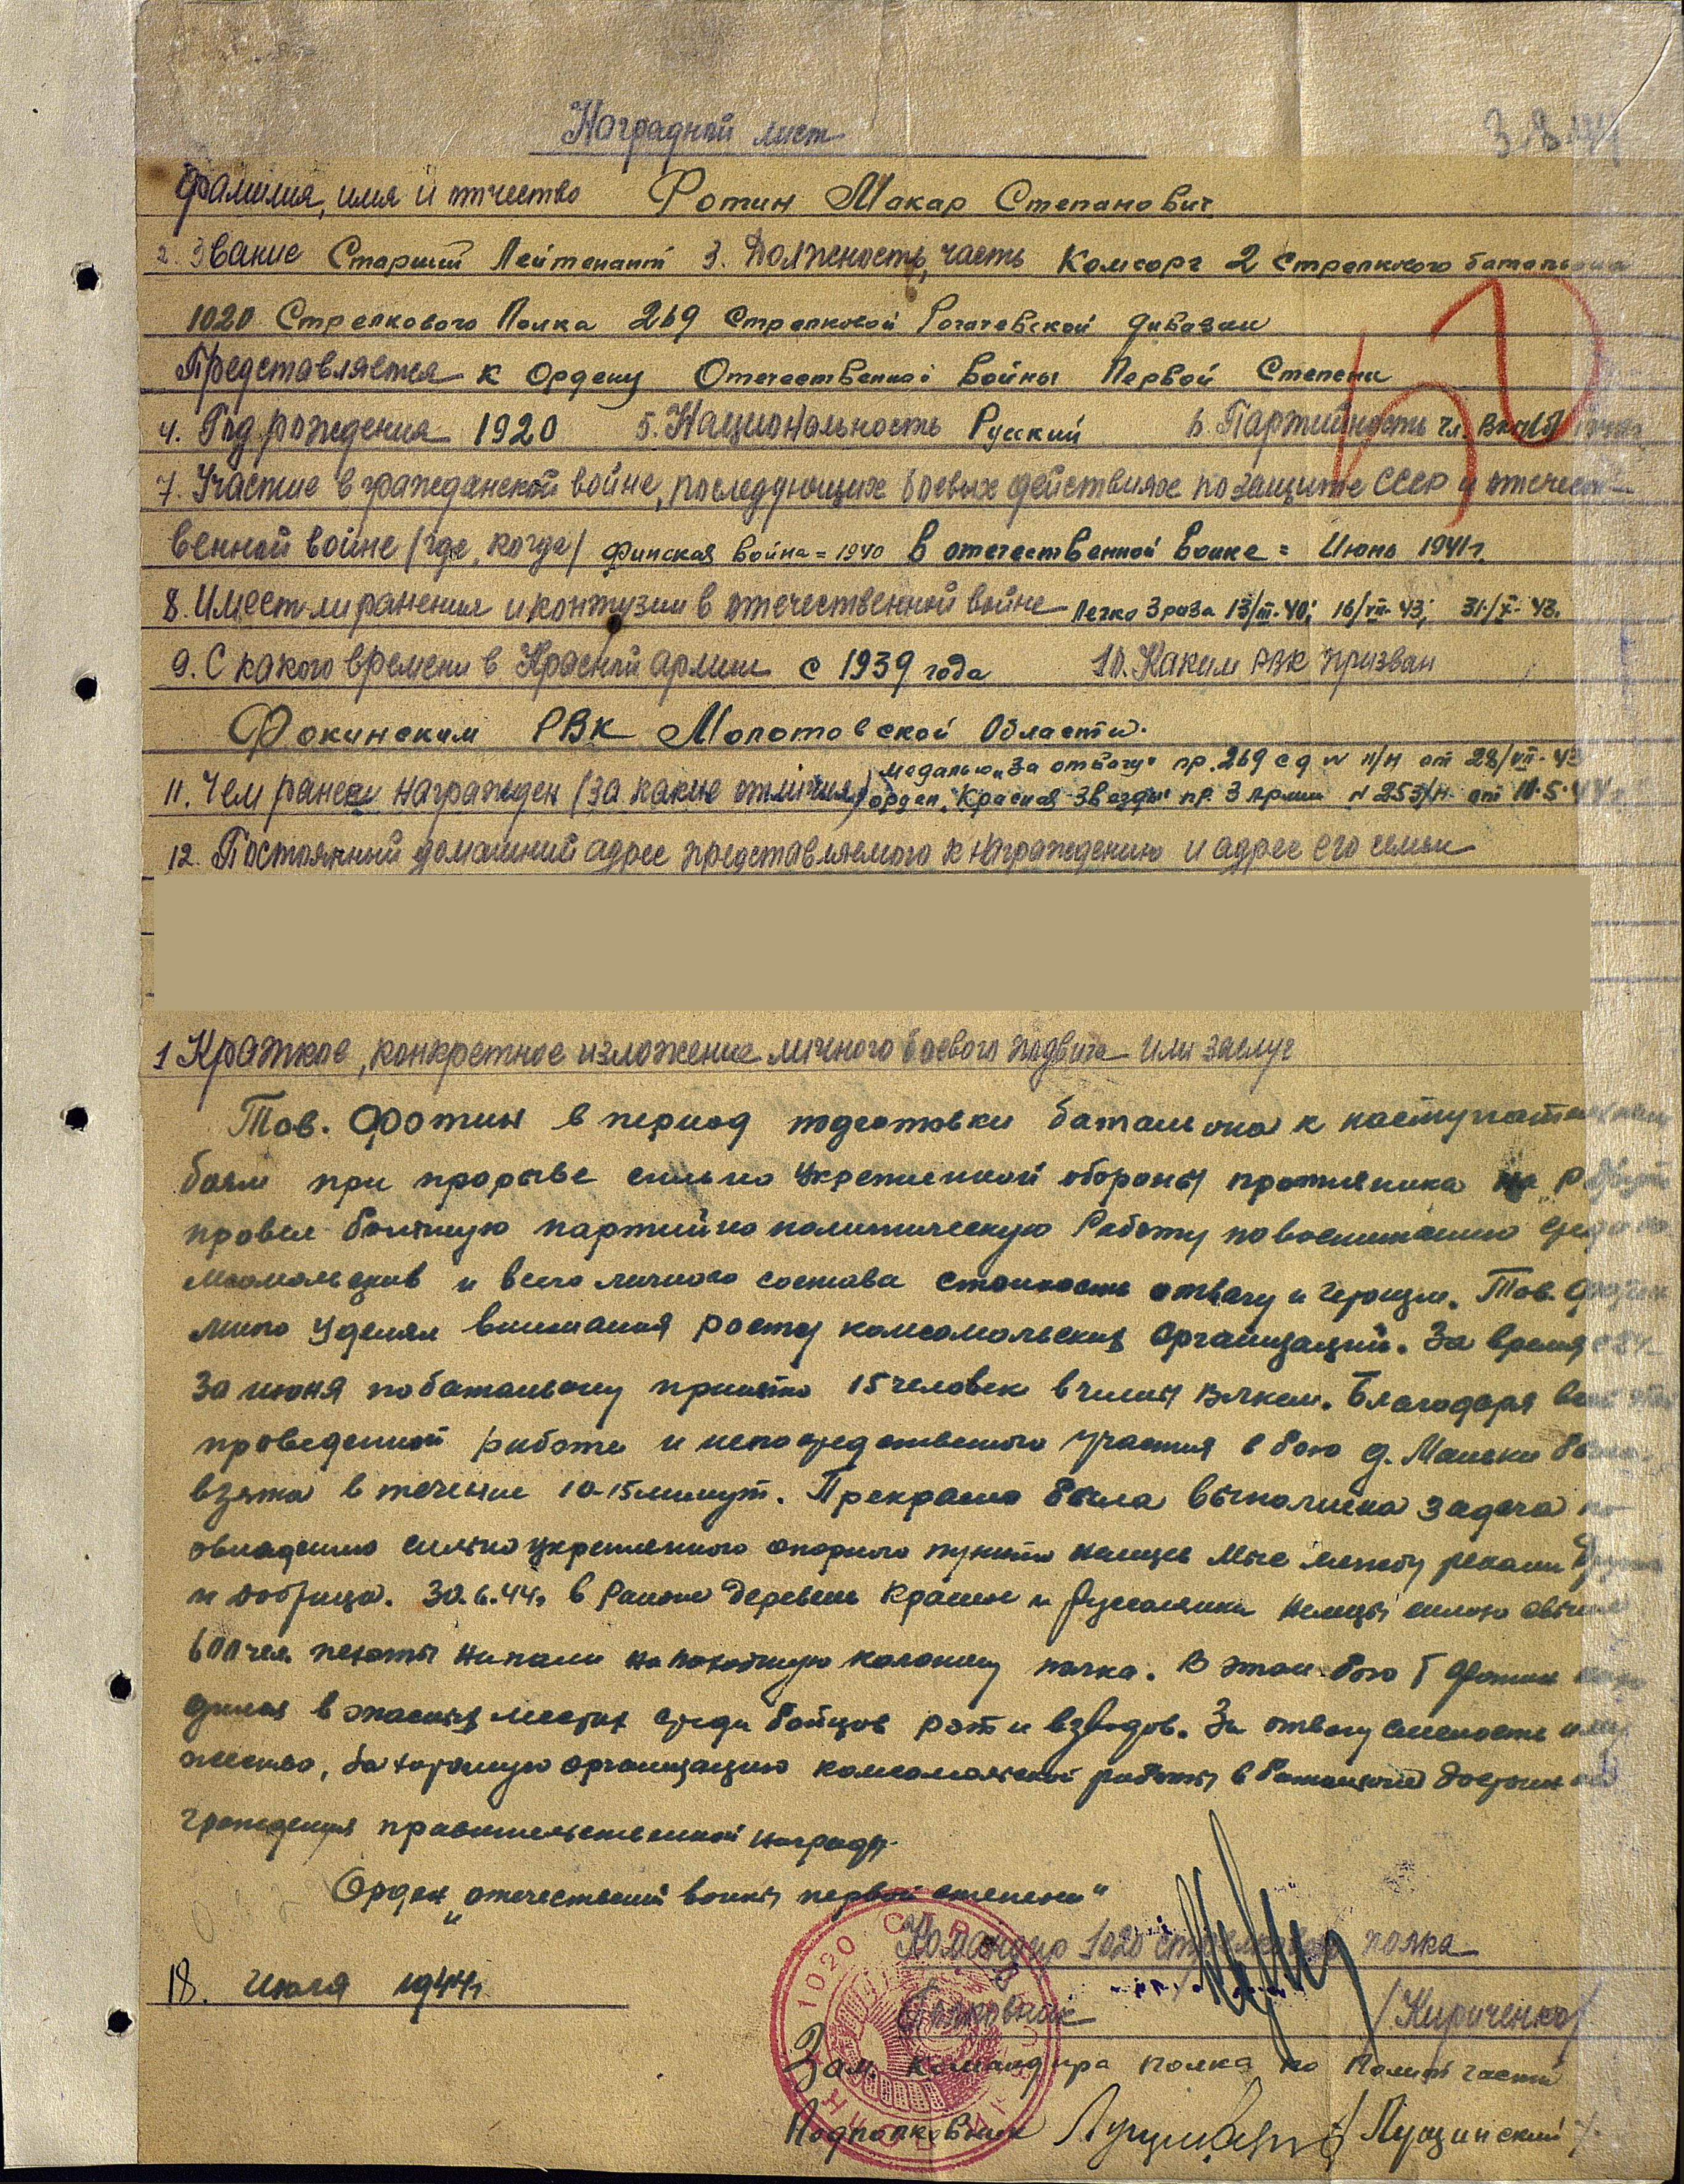 Наградной лист
3.8.44
Фамилия, имя и отчество Фотин Макар Степанович
2. Звание Старший Лейтенант 3. Должность, часть Комсорг 2 Стрелкового батальона
1020 Стрелкового Полка 269 Стрелковой Рогачевской дивизии
Представляется к Ордену Отечественной Войны Первой Степени
4. Год рождения 1920 5. Национальность Русский 6. Партийность чл. ВКП(б)
7. Участие в гражданской войне, последующих боевых действиях по защите СССР и отечест-
венной войне /где, когда/ Финская война = 1940 в отечественной войне = Июнь 1941 г.
8. Имеет ли ранения и контузии в отечественной войне Легко 3 раза 13/III-40; 16/VII-43; 31/X-43.
9. С какого времени в Красной армии с 1939 года 10. Каким РВК призван
Фокинским РВК Молотовской Области.
медалью „За отвагу" пр. 269 сд N п/н от 28/VII-43
11. Чем ранее награжден (за какие отличия) орден „Красная Звезда" пр. 3 Армии N 253/н от 10.5.44
12. Постоянный домашний адрес представляемого к награждению и адрес его семьи
1 Краткое, конкретное изложение личного боевого подвига или заслуг
Тов. Фотин в период подготовки батальона к наступательным
боям при прорыве сильно укрепленной обороны противника на р.
провел большую партийно политическую Работу по воспитанию среди ко
мсомольцев и всего личного состава стойкость отвагу и героизм. Тов. Фотин
много уделял внимания росту комсомольских организаций. За время
За июня по батальону принято 15 человек в члены ВЛКСМ. Благодаря всей этой
проведенной работе и непосредственного участия в бою д. была
взята в течение 10-15 минут. Прекрасно была выполнена задача по
овладению сильно укрепленного опорного пункта немцев Мыс между реками Друть
и Добрица. 30.6.44г. в Районе деревень Красное и немцы силою свыше
600 чел. пехоты напали на походную колонну полка. В этом бою т Фотин нахо
дился в опасных местах среди бойцов рот и взводов. За отвагу смелость и му
жество, за хорошую организацию комсомольской работы в батальоне достоин на
граждения правительственной награды.
Орден „отечественной войны первой степени"
Командир 1020 стрелкового полка
18. Июля 1944г.
Полковник /Кириченко/
Зам. командира полка по Полит части
Подполковник /Лущинский/